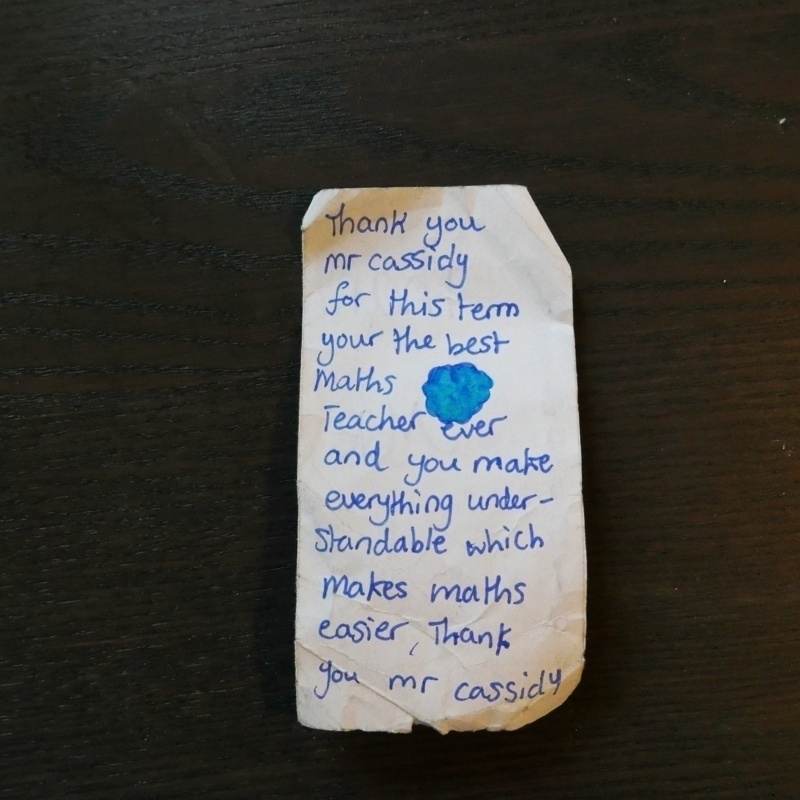 Thank you
mr cassidy
for this term
your the best
Maths
Teacher ever
and you make
everything under-
standable which
makes maths
easier, Thank
you mr cassidy